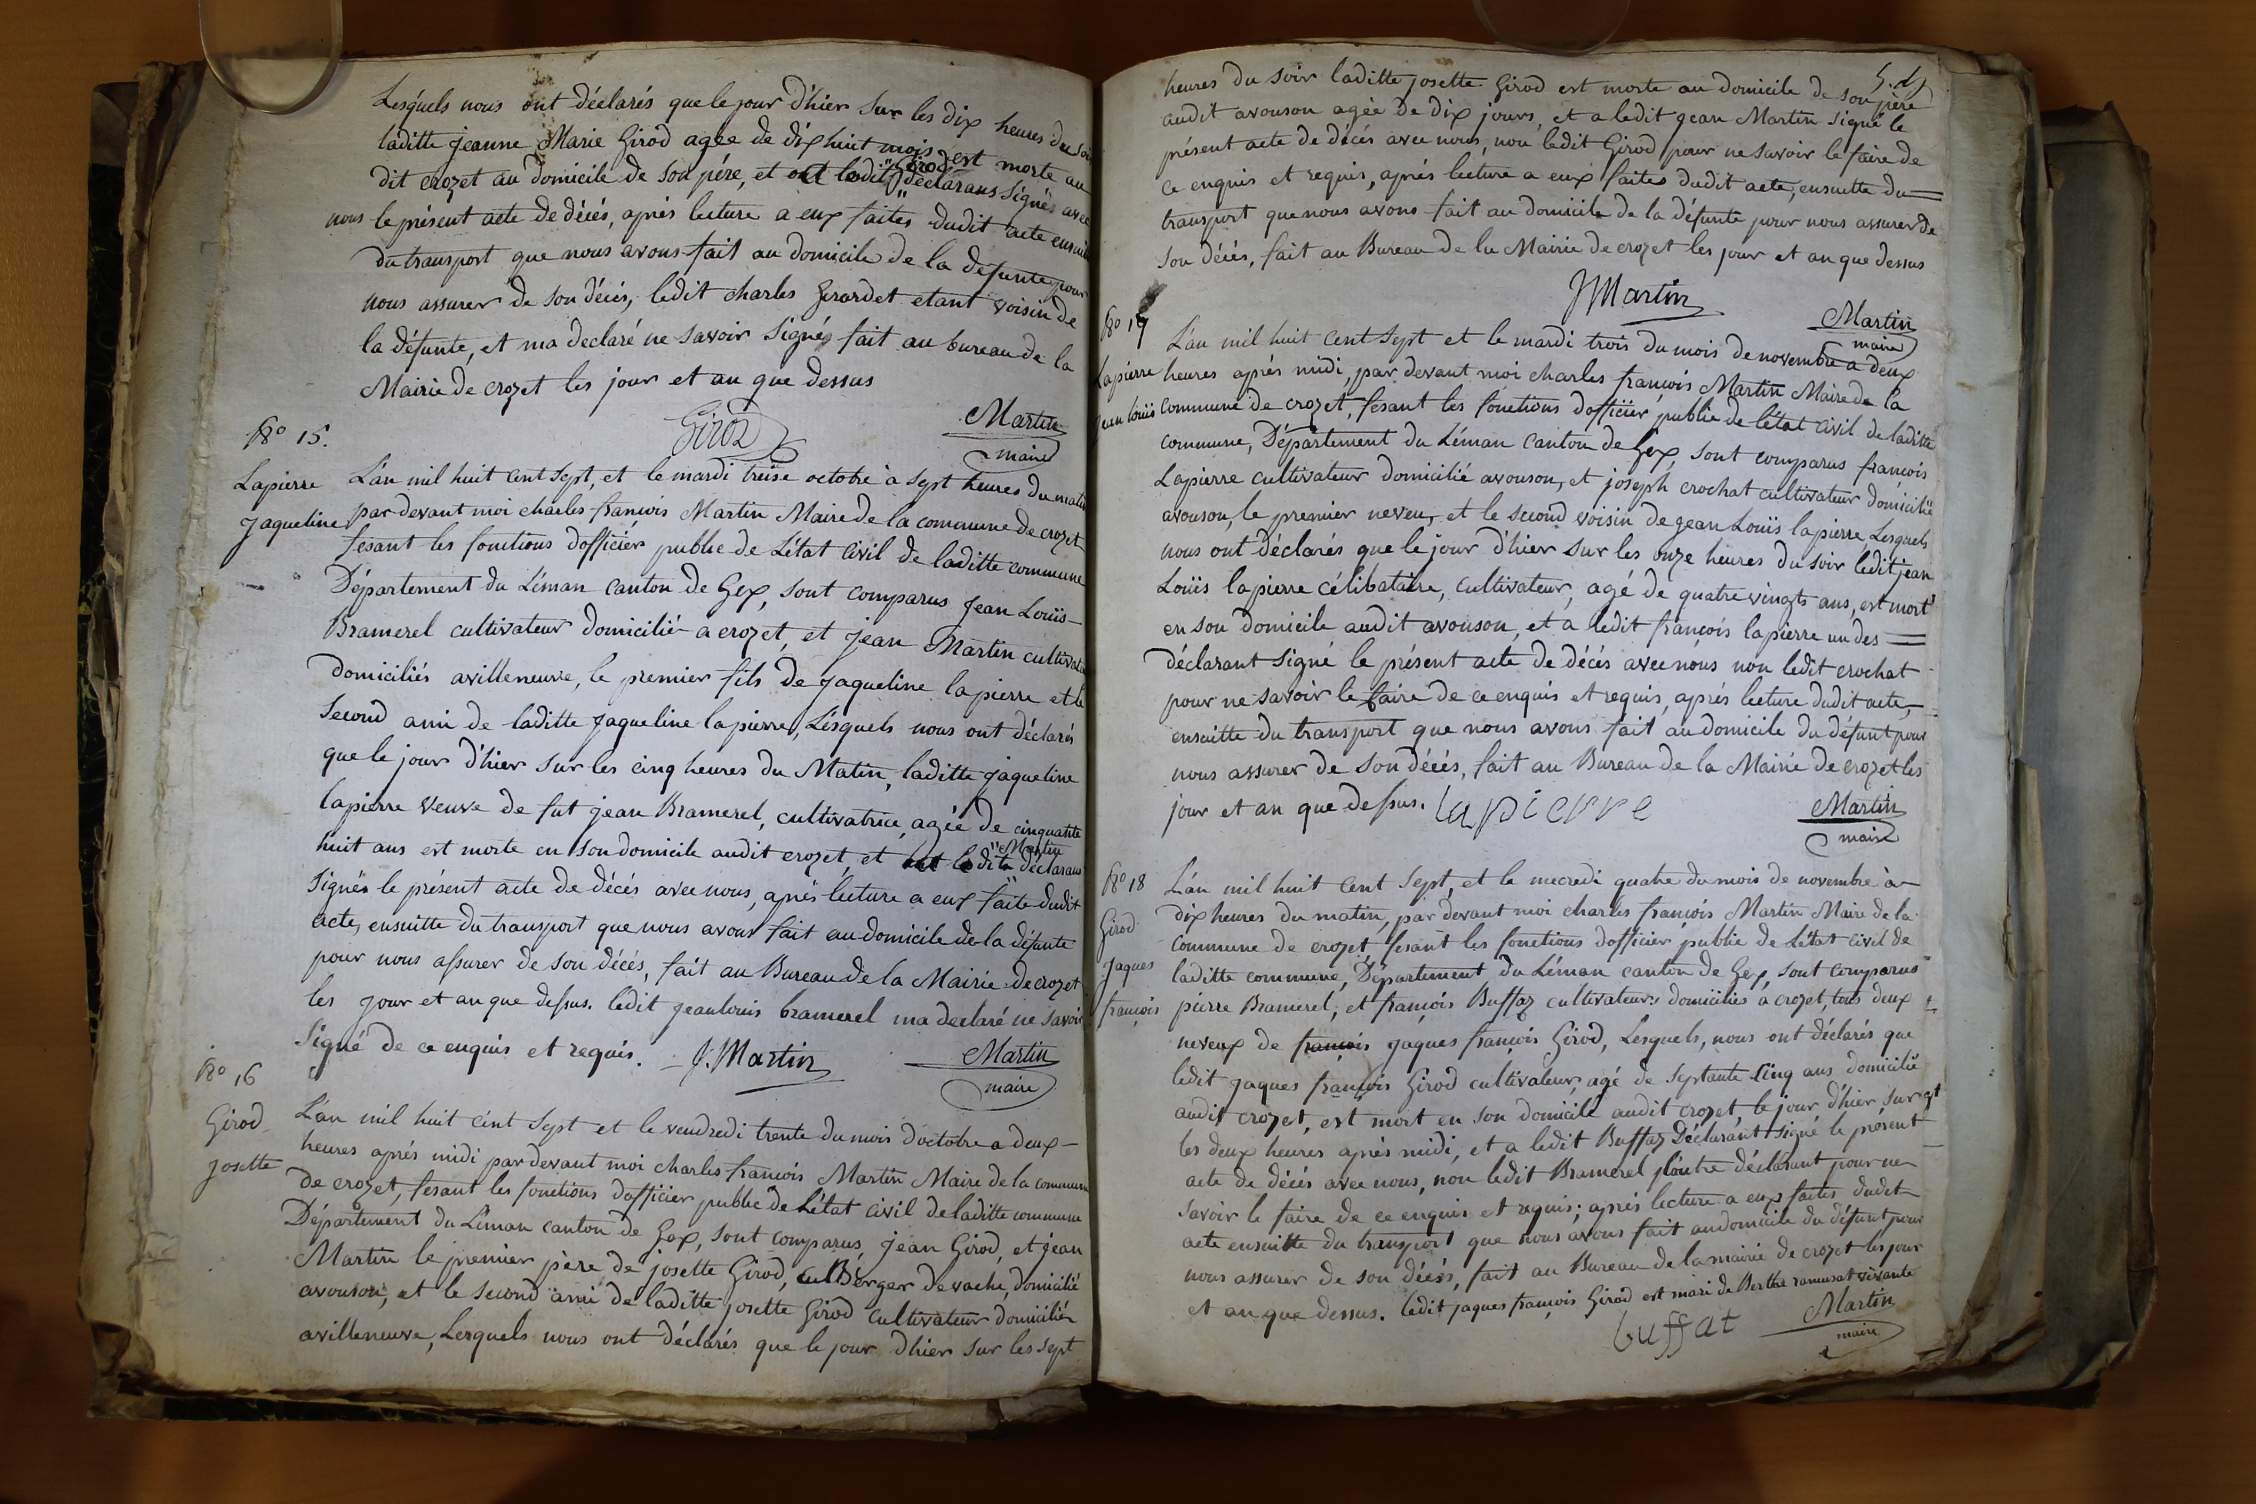 Lesquels nous ont déclarés que le jour d'hier sur les dix heures du soir
laditte jeanne Marie Girod agée de dix huit mois est morte au
dit crozet au domicile de son pére, et ont ledit Girod déclarans signés avec
nous le présent acte de décés, aprés lecture a eux faites dudit acte ensuitte
du transport que nous avons fait au domicile de la défunte pour
nous assurer de son décés, ledit charles Girardet etant voisin de
la défunte, et ma declaré ne savoir signés fait au bureau de la
Mairie de crozet les jour et an que dessus
Girod
Martin
maire
No 15.
Lapierre
jaqueline
L'an mil huit cent sept, et le mardi treise octobre à sept heures du matin
par devant moi charles françois Martin Maire de la commune de crozet
fesant les fonctions d'officier public de L'état Civil de laditte commune
Département du Léman canton de Gex, sont comparus Jean Louïs
Bramerel cultivateur domicilié a crozet, et jean Martin cultivateur
domiciliés avilleneuve, le premier fils de jaqueline lapierre et le
second ami de laditte jaqueline lapierre, Lésquels nous ont déclarés
que le jour d'hier sur les cinq heures du Matin, laditte jaqueline
lapierre veuve de fut jean Bramerel, cultivatrice, agée de cinquante
huit ans est morte en son domicile audit crozet, et ont ledit Martin déclarans
signés le présent acte de décés avec nous, aprés lecture a eux faite dudit
acte, ensuitte du transport que nous avons fait au domicile de la défunte
pour nous assurer de son décés, fait au Bureau de la Mairie de crozet
les jour et an que dessus. ledit jean louis bramerel ma declaré ne savoir
signé de ce enquis et requis. J. Martin
Martin
maire
No 16
Girod
josette
L'an mil huit cent sept et le vendredi trente du mois d'octobre a deux
heures aprés midi par devant moi charles françois Martin Maire de la commune
de crozet, fesant les fonctions d'officier public de L'état civil de laditte commune
Département du Léman canton de Gex, sont comparus, jean Girod, et jean
Martin le premier pére de josette Girod, Berger de vache, domicilié
avouson, et le second ami de laditte josette Girod cultivateur domicilié
avilleneuve, Lesquels nous ont déclarés que le jour d'hier sur les sept
heures du soir laditte josette Girod est morte au domicile de son pére
audit avouson agée de dix jours, et a ledit jean Martin signé le
présent acte de décés avec nous, non ledit Girod pour ne savoir le faire de
ce enquis et requis, aprés lecture a eux faites dudit acte, ensuitte du
transport que nous avons fait au domicile de la défunte pour nous assurer de
son décés, fait au Bureau de la Mairie de crozet les jour et an que dessus
JMartin
Martin
maire
No 17
Lapierre
jean louïs
L'an mil huit cent sept et le mardi trois du mois de novembre a deux
heures aprés midi, par devant moi charles françois Martin Maire de la
commune de crozet, fesant les fonctions d'officier public de l'état civil de laditte
commune, Département du Léman Canton de Gex, sont comparus françois
Lapierre cultivateur domicilié avouson, et joseph crochat cultivateur domicilié
avouson, le premier neveu, et le second voisin de jean Louïs lapierre, Lesquels
nous ont déclarés que le jour d'hier sur les onze heures du soir ledit jean
Louïs lapierre célibataire, cultivateur, agé de quatre vingts ans, est mort
en son domicile audit avouson, et a ledit françois lapierre un des
déclarant signé le présent acte de décés avec nous non ledit crochat
pour ne savoir le faire de ce enquis et requis, aprés lecture dudit acte,
ensuitte du transport que nous avons fait au domicile du défunt pour
nous assurer de son décés, fait au Bureau de la Mairie de crozet les
jour et an que dessus. lapierre
Martin
maire
No 18
Girod
jaques
françois
L'an mil huit cent sept, et le mecredi quatre du mois de novembre à
dix heures du matin, par devant moi charles françois Martin Maire de la
commune de crozet, fesant les fonctions d'officier public de L'état civil de
laditte commune, Département du Léman canton de Gex, sont comparus
pierre Bramerel, et françois Buffaz cultivateurs domiciliés à crozet, tous deux
neveux de françois jaques françois Girod, Lesquels, nous ont déclarés que
ledit jaques françois Girod cultivateur, agé de septante cinq ans domicilié
audit crozet, est mort en son domicile audit crozet, le jour d'hier, sur
les deux heures aprés midi, et a ledit Buffaz Déclarant signé le présent
acte de décés avec nous, non ledit Bramerel l'autre déclarant pour ne
savoir le faire de ce enquis et requis; aprés lecture a eux faites dudit
acte ensuitte du transport que nous avons fait au domicile du défunt pour
nous assurer de son décés, fait au Bureau de la mairie de crozet les jour
et an que dessus. ledit jaques françois Girod est mari de Berthe ramusat vivante
buffat
Martin
maire